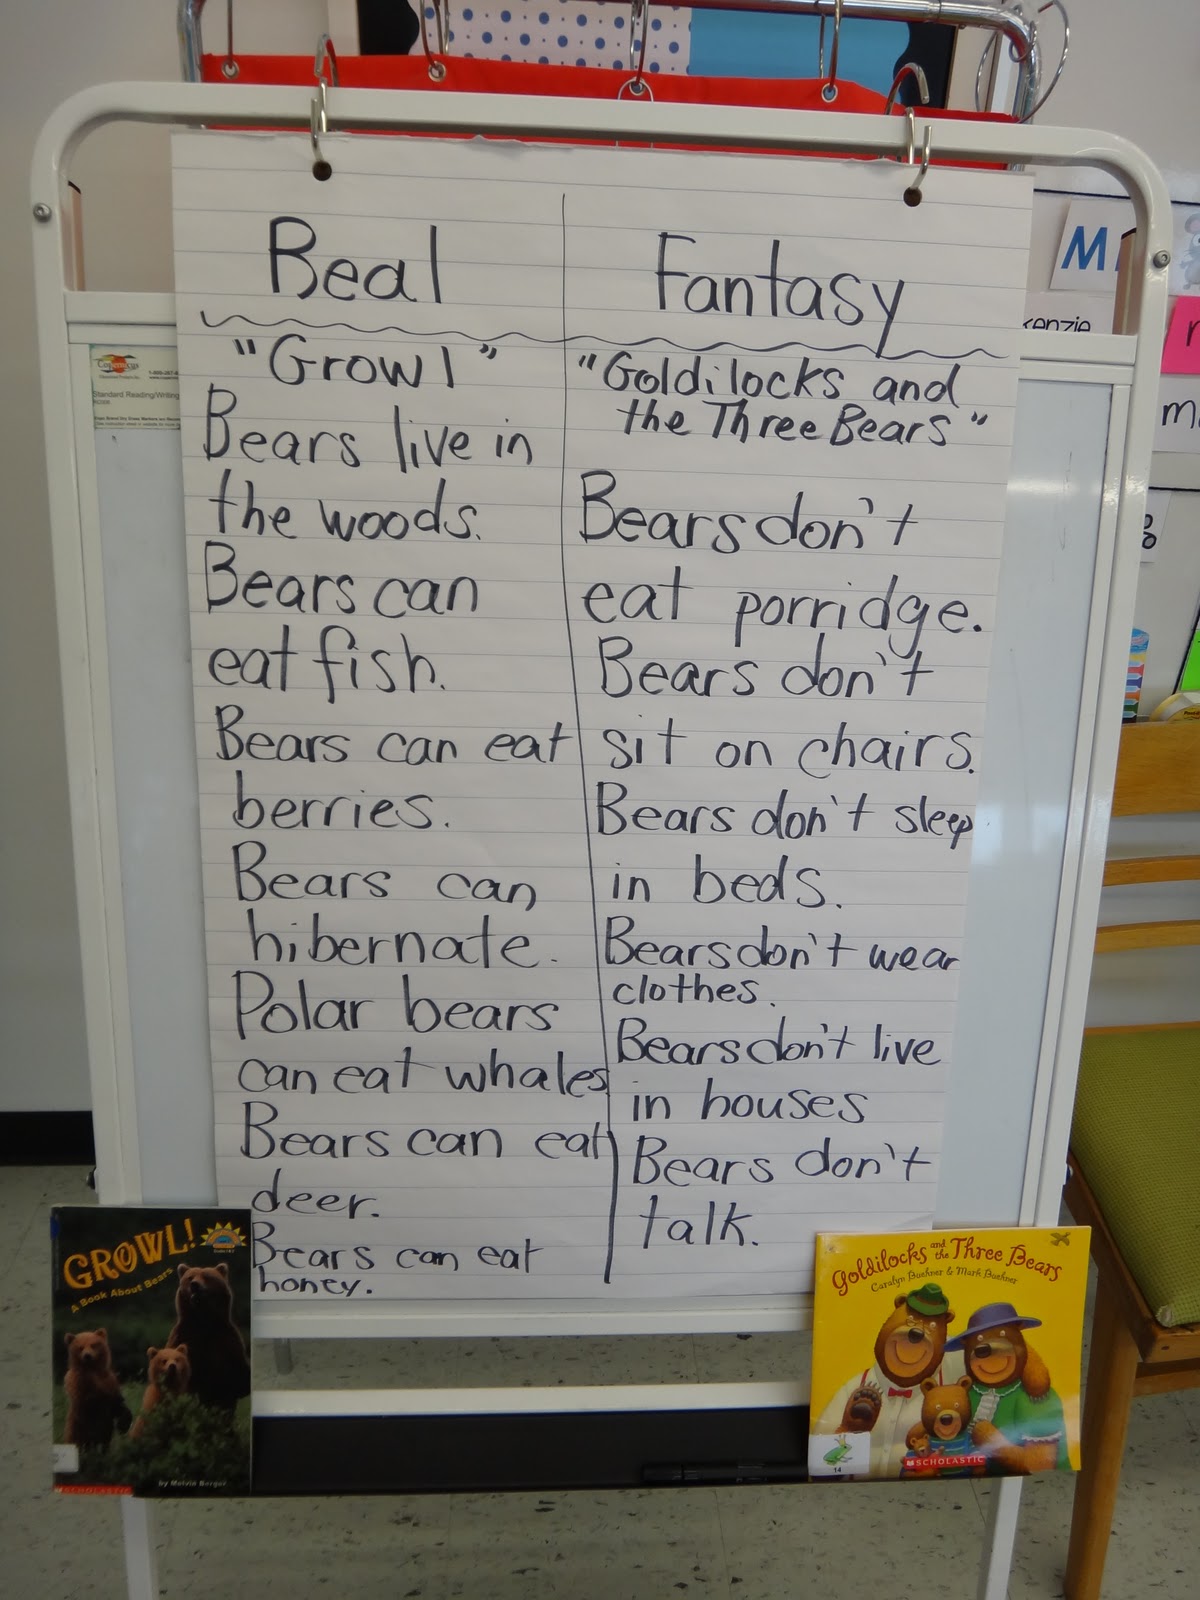 Real
Fantasy
"Growl"
Bears live in
the woods.
Bears can
eat fish.
Bears can eat
berries.
Bears can
hibernate.
Polar bears
can eat whales
Bears can eat
deer.
Bears can eat
honey.
"Goldilocks and
the Three Bears"
Bears don't
eat porridge.
Bears don't
sit on chairs.
Bears don't sleep
in beds.
Bears don't wear
clothes.
Bears don't live
in houses
Bears don't
talk.
GROWL!
A Book About Bears
by Melvin Berger
SCHOLASTIC
Goldilocks and the Three Bears
Caralyn Buehner & Mark Buehner
14
SCHOLASTIC
Copernicus
Standard Reading/Writing
M
kenzie